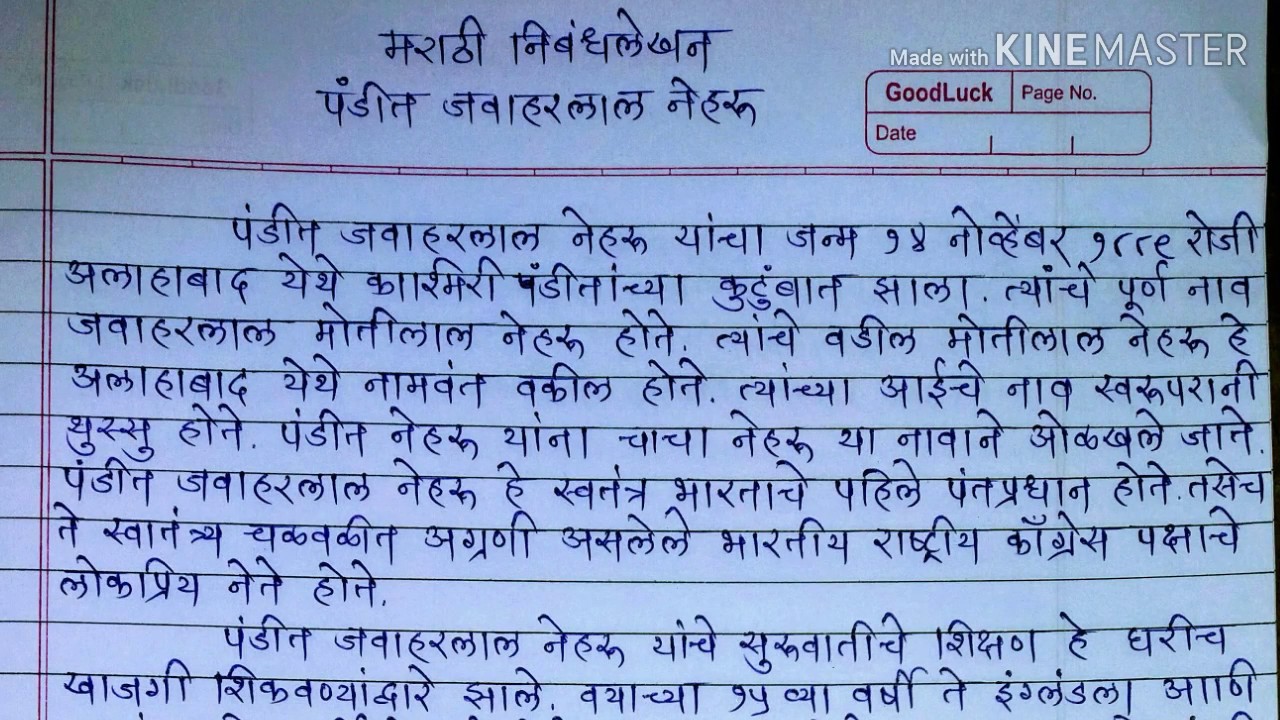 मराठी निबंधलेखन
Made with KINEMASTER
पंडीत जवाहरलाल नेहरू
GoodLuck Page No.
Date
पंडीत जवाहरलाल नेहरू यांचा जन्म १४ नोव्हेंबर १८८९ रोजी
अलाहाबाद येथे काश्मिरी पंडीतांच्या कुटुंबात झाला. त्यांचे पूर्ण नाव
जवाहरलाल मोतीलाल नेहरू होते. त्यांचे वडील मोतीलाल नेहरू हे
अलाहाबाद येथे नामवंत वकील होते. त्यांच्या आईचे नाव स्वरूपरानी
थुस्सु होते. पंडीत नेहरू यांना चाचा नेहरू या नावाने ओळखले जाते.
पंडीत जवाहरलाल नेहरू हे स्वतंत्र भारताचे पहिले पंतप्रधान होते. तसेच
ते स्वातंत्र्य चळवळीत अग्रणी असलेले भारतीय राष्ट्रीय काँग्रेस पक्षाचे
लोकप्रिय नेते होते.
पंडीत जवाहरलाल नेहरू यांचे सुरुवातीचे शिक्षण हे घरीच
खाजगी शिकवण्यांद्वारे झाले. वयाच्या १५ व्या वर्षी ते इंग्लंडला आणि